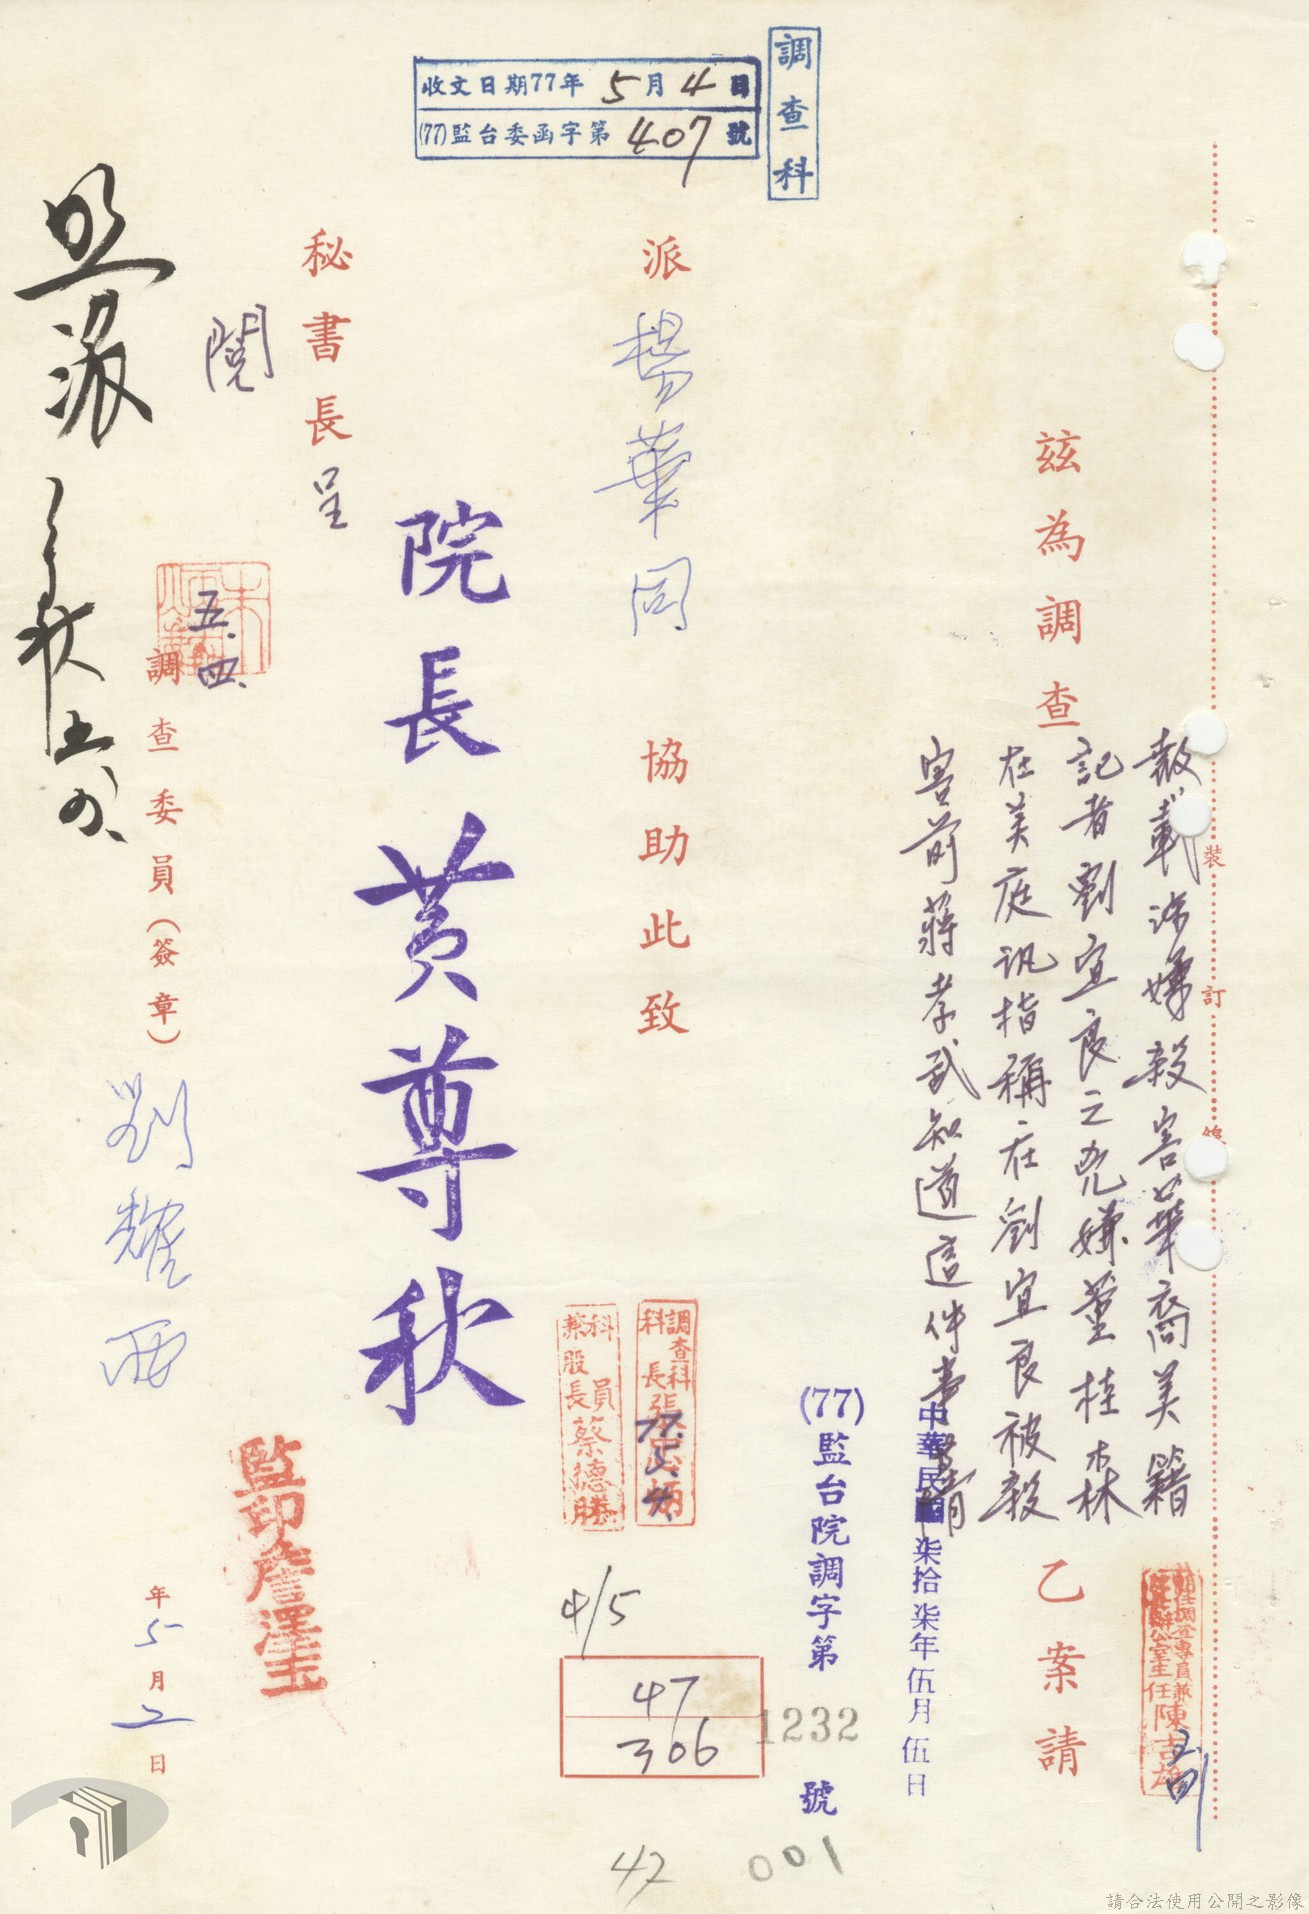 調查科
收文日期77年5月4日
(77)監台委函字第407號
裝訂線
茲為調查
報載涉嫌殺害華裔美籍
記者劉宜良之兇嫌董桂森
在美庭訊指稱在劉宜良被殺
害前蔣孝武知道這件事情
乙案請
陳吉雄
中華民國柒拾柒年伍月伍日
(77)監台院調字第1232號
派楊華同協助此致
調查科科長張
77.5.4.
科員兼股長蔡德勝
4/5
47
306
院長黃尊秋
秘書長呈
閱
五.四.
監印詹澤玉
調查委員(簽章)劉耀西
年5月2日
照派
47
001
請合法使用公開之影像